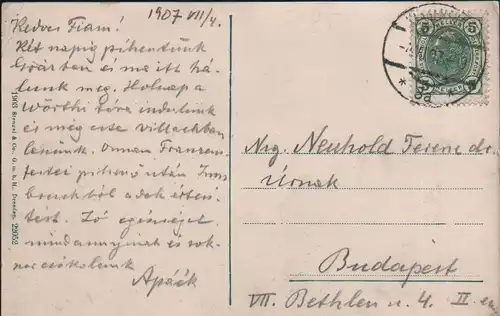 1907 VII/4.
Kedves Fiam!
Két napig pihentünk
és ma itt há-
lunk meg. Holnap a
Wörthi tóra indulunk
és még este Villachban
leszünk. Onnan Franzens-
festei pihenő után Inns-
bruckból adok értesi-
tést. Jó egészséget
mindannyinak és sok-
szor csókolunk
Apáék
1905 Stengel & Co., G. m. b. H., Dresden. 29052
5 5
8a
Nrg. Neuhold Ferenc dr
Úrnak
Budapest
VII. Bethlen u. 4. II em